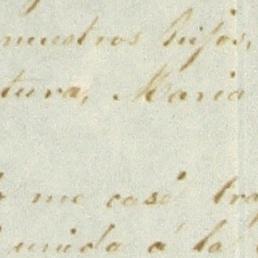 nuestros hijos,
tura, Maria
me casé
unida á la